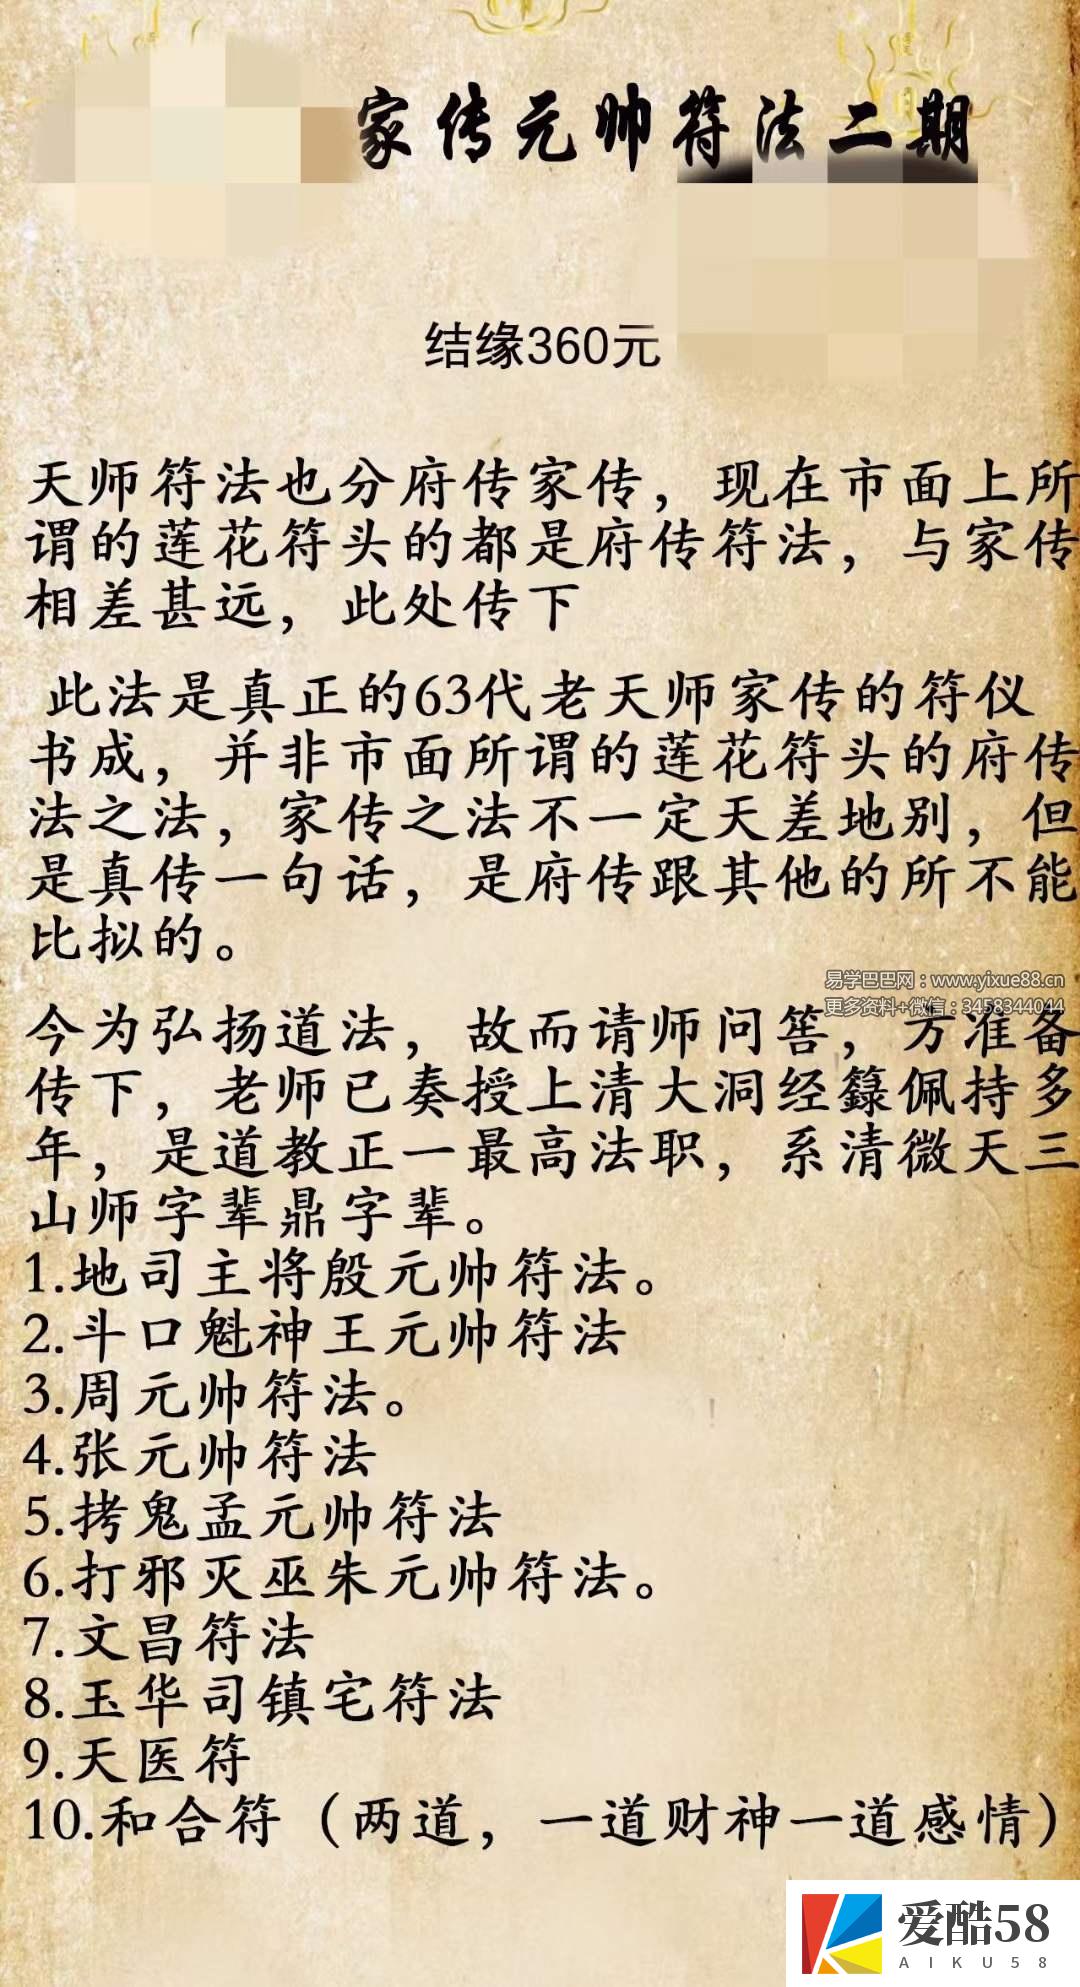 家传元帅符法二期
结缘360元
天师符法也分府传家传，现在市面上所
谓的莲花符头的都是府传符法，与家传
相差甚远，此处传下
此法是真正的63代老天师家传的符仪
书成，并非市面所谓的莲花符头的府传
法之法，家传之法不一定天差地别，但
是真传一句话，是府传跟其他的所不能
比拟的。
易学巴巴网：www.yixue88.cn
更多资料+微信：3458344044
今为弘扬道法，故而请师问筶，方准备
传下，老师已奏授上清大洞经籙佩持多
年，是道教正一最高法职，系清微天三
山师字辈鼎字辈。
1.地司主将殷元帅符法。
2.斗口魁神王元帅符法
3.周元帅符法。
4.张元帅符法
5.拷鬼孟元帅符法
6.打邪灭巫朱元帅符法。
7.文昌符法
8.玉华司镇宅符法
9.天医符
10.和合符（两道，一道财神一道感情）
爱酷58
AIKU58